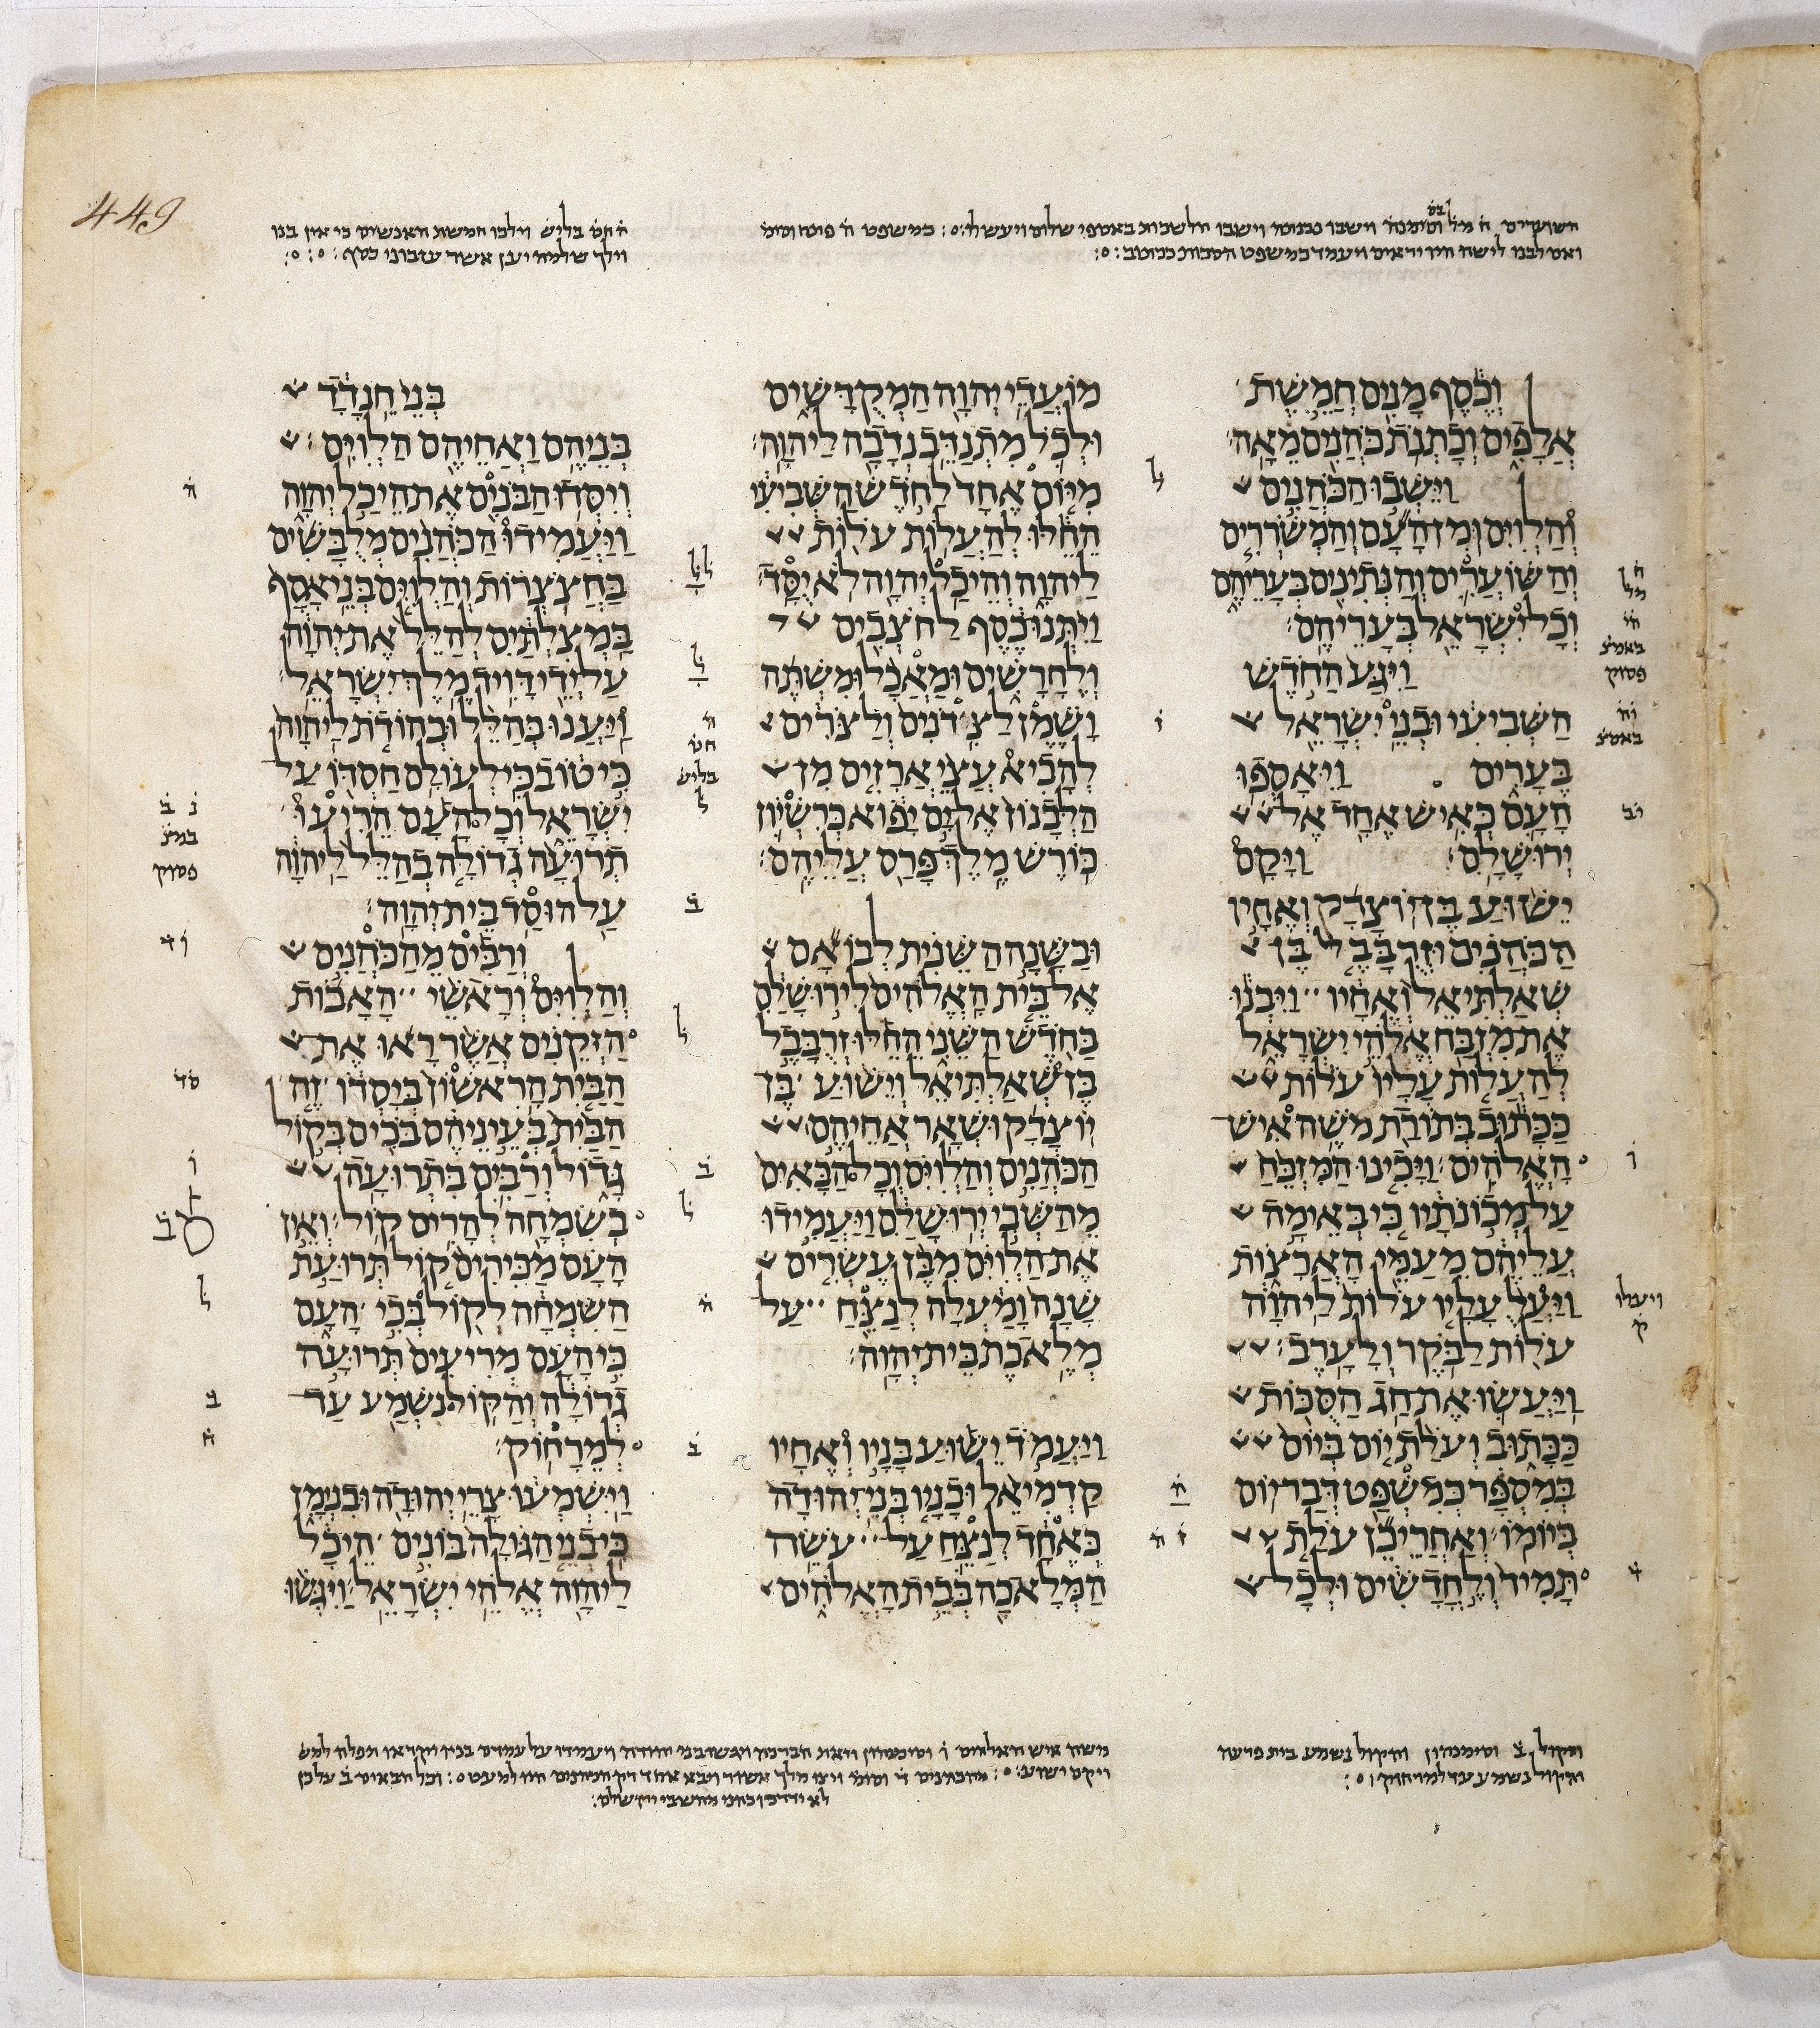 449
וילכו חמשת האנשים כי אין בנו
וילך שלמה יען אשר עזבוני כסף
וְכֶסֶף מָנִים חֲמֵשֶׁת
אֲלָפִים וְכָתְנֹת כֹּהֲנִים מֵאָה׃
וַיֵּשְׁבוּ הַכֹּהֲנִים
וְהַלְוִיִּם וּמִן הָעָם וְהַמְשֹׁרְרִים
וְהַשּׁוֹעֲרִים וְהַנְּתִינִים בְּעָרֵיהֶם
וְכָל יִשְׂרָאֵל בְּעָרֵיהֶם׃
וַיִּגַּע הַחֹדֶשׁ
הַשְּׁבִיעִי וּבְנֵי יִשְׂרָאֵל
בֶּעָרִים וַיֵּאָסְפוּ
הָעָם כְּאִישׁ אֶחָד אֶל
יְרוּשָׁלִָם׃ וַיָּקָם
יֵשׁוּעַ בֶּן יוֹצָדָק וְאֶחָיו
הַכֹּהֲנִים וּזְרֻבָּבֶל בֶּן
שְׁאַלְתִּיאֵל וְאֶחָיו וַיִּבְנוּ
אֶת מִזְבַּח אֱלֹהֵי יִשְׂרָאֵל
לְהַעֲלוֹת עָלָיו עֹלוֹת
כַּכָּתוּב בְּתוֹרַת מֹשֶׁה אִישׁ
הָאֱלֹהִים׃ וַיָּכִינוּ הַמִּזְבֵּחַ
עַל מְכוֹנֹתָיו כִּי בְּאֵימָה
עֲלֵיהֶם מֵעַמֵּי הָאֲרָצוֹת
וַיַּעַל עָלָיו עֹלוֹת לַיהוָה
עֹלוֹת לַבֹּקֶר וְלָעָרֶב׃
וַיַּעֲשׂוּ אֶת חַג הַסֻּכּוֹת
כַּכָּתוּב וְעֹלַת יוֹם בְּיוֹם
בְּמִסְפָּר כְּמִשְׁפַּט דְּבַר יוֹם
בְּיוֹמוֹ׃ וְאַחֲרֵי כֵן עֹלַת
תָּמִיד וְלֶחֳדָשִׁים וּלְכָל
מוֹעֲדֵי יְהוָה הַמְקֻדָּשִׁים
וּלְכֹל מִתְנַדֵּב נְדָבָה לַיהוָה׃
מִיּוֹם אֶחָד לַחֹדֶשׁ הַשְּׁבִיעִי
הֵחֵלּוּ לְהַעֲלוֹת עֹלוֹת
לַיהוָה וְהֵיכַל יְהוָה לֹא יֻסָּד׃
וַיִּתְּנוּ כֶסֶף לַחֹצְבִים
וְלֶחָרָשִׁים וּמַאֲכָל וּמִשְׁתֶּה
וָשֶׁמֶן לַצִּדֹנִים וְלַצֹּרִים
לְהָבִיא עֲצֵי אֲרָזִים מִן
הַלְּבָנוֹן אֶל יָם יָפוֹא כְּרִשְׁיוֹן
כּוֹרֶשׁ מֶלֶךְ פָּרַס עֲלֵיהֶם׃
וּבַשָּׁנָה הַשֵּׁנִית לְבוֹאָם
אֶל בֵּית הָאֱלֹהִים לִירוּשָׁלִַם
בַּחֹדֶשׁ הַשֵּׁנִי הֵחֵלּוּ זְרֻבָּבֶל
בֶּן שְׁאַלְתִּיאֵל וְיֵשׁוּעַ בֶּן
יוֹצָדָק וּשְׁאָר אֲחֵיהֶם
הַכֹּהֲנִים וְהַלְוִיִּם וְכָל הַבָּאִים
מֵהַשְּׁבִי יְרוּשָׁלִַם וַיַּעֲמִידוּ
אֶת הַלְוִיִּם מִבֶּן עֶשְׂרִים
שָׁנָה וָמַעְלָה לְנַצֵּחַ עַל
מְלֶאכֶת בֵּית יְהוָה׃
וַיַּעֲמֹד יֵשׁוּעַ בָּנָיו וְאֶחָיו
קַדְמִיאֵל וּבָנָיו בְּנֵי יְהוּדָה
כְּאֶחָד לְנַצֵּחַ עַל עֹשֵׂה
הַמְּלָאכָה בְּבֵית הָאֱלֹהִים
בְּנֵי חֵנָדָד
בְּנֵיהֶם וַאֲחֵיהֶם הַלְוִיִּם׃
וְיִסְּדוּ הַבֹּנִים אֶת הֵיכַל יְהוָה
וַיַּעֲמִידוּ הַכֹּהֲנִים מְלֻבָּשִׁים
בַּחֲצֹצְרוֹת וְהַלְוִיִּם בְּנֵי אָסָף
בַּמְצִלְתַּיִם לְהַלֵּל אֶת יְהוָה
עַל יְדֵי דָּוִיד מֶלֶךְ יִשְׂרָאֵל׃
וַיַּעֲנוּ בְּהַלֵּל וּבְהוֹדֹת לַיהוָה
כִּי טוֹב כִּי לְעוֹלָם חַסְדּוֹ עַל
יִשְׂרָאֵל וְכָל הָעָם הֵרִיעוּ
תְרוּעָה גְדוֹלָה בְהַלֵּל לַיהוָה
עַל הוּסַד בֵּית יְהוָה׃
וְרַבִּים מֵהַכֹּהֲנִים
וְהַלְוִיִּם וְרָאשֵׁי הָאָבוֹת
הַזְּקֵנִים אֲשֶׁר רָאוּ אֶת
הַבַּיִת הָרִאשׁוֹן בְּיָסְדוֹ זֶה
הַבַּיִת בְּעֵינֵיהֶם בֹּכִים בְּקוֹל
גָּדוֹל וְרַבִּים בִּתְרוּעָה
בְשִׂמְחָה לְהָרִים קוֹל׃ וְאֵין
הָעָם מַכִּירִים קוֹל תְּרוּעַת
הַשִּׂמְחָה לְקוֹל בְּכִי הָעָם
כִּי הָעָם מְרִיעִים תְּרוּעָה
גְדוֹלָה וְהַקּוֹל נִשְׁמַע עַד
לְמֵרָחוֹק׃
וַיִּשְׁמְעוּ צָרֵי יְהוּדָה וּבִנְיָמִן
כִּי בְנֵי הַגּוֹלָה בּוֹנִים הֵיכָל
לַיהוָה אֱלֹהֵי יִשְׂרָאֵל׃ וַיִּגְּשׁוּ
והקול ב וסימנהון והקול נשמע בית פרעה
והקול נשמע עד למרחוק
משה איש האלהים ו וסימנהון וזאת הברכה ויגשו בני יהודה ויעמדו על עמדם
ויקם ישוע מהכהנים ד וסימ ויצו מלך אשור ויבא אחד רק הכהנים היו למעט וכל הבאים ב על כן
לא ידרכו כהני מהשבי ירושלם